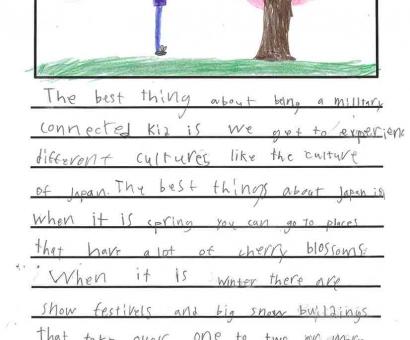 The best thing about being a military
connected kid is we get to experienc
different cultures like the culture
of Japan. The best things about Japan is
when it is spring you can go to places
that have a lot of cherry blossoms.
When it is winter there are
snow festivels and big snow buildings
that take over one to two